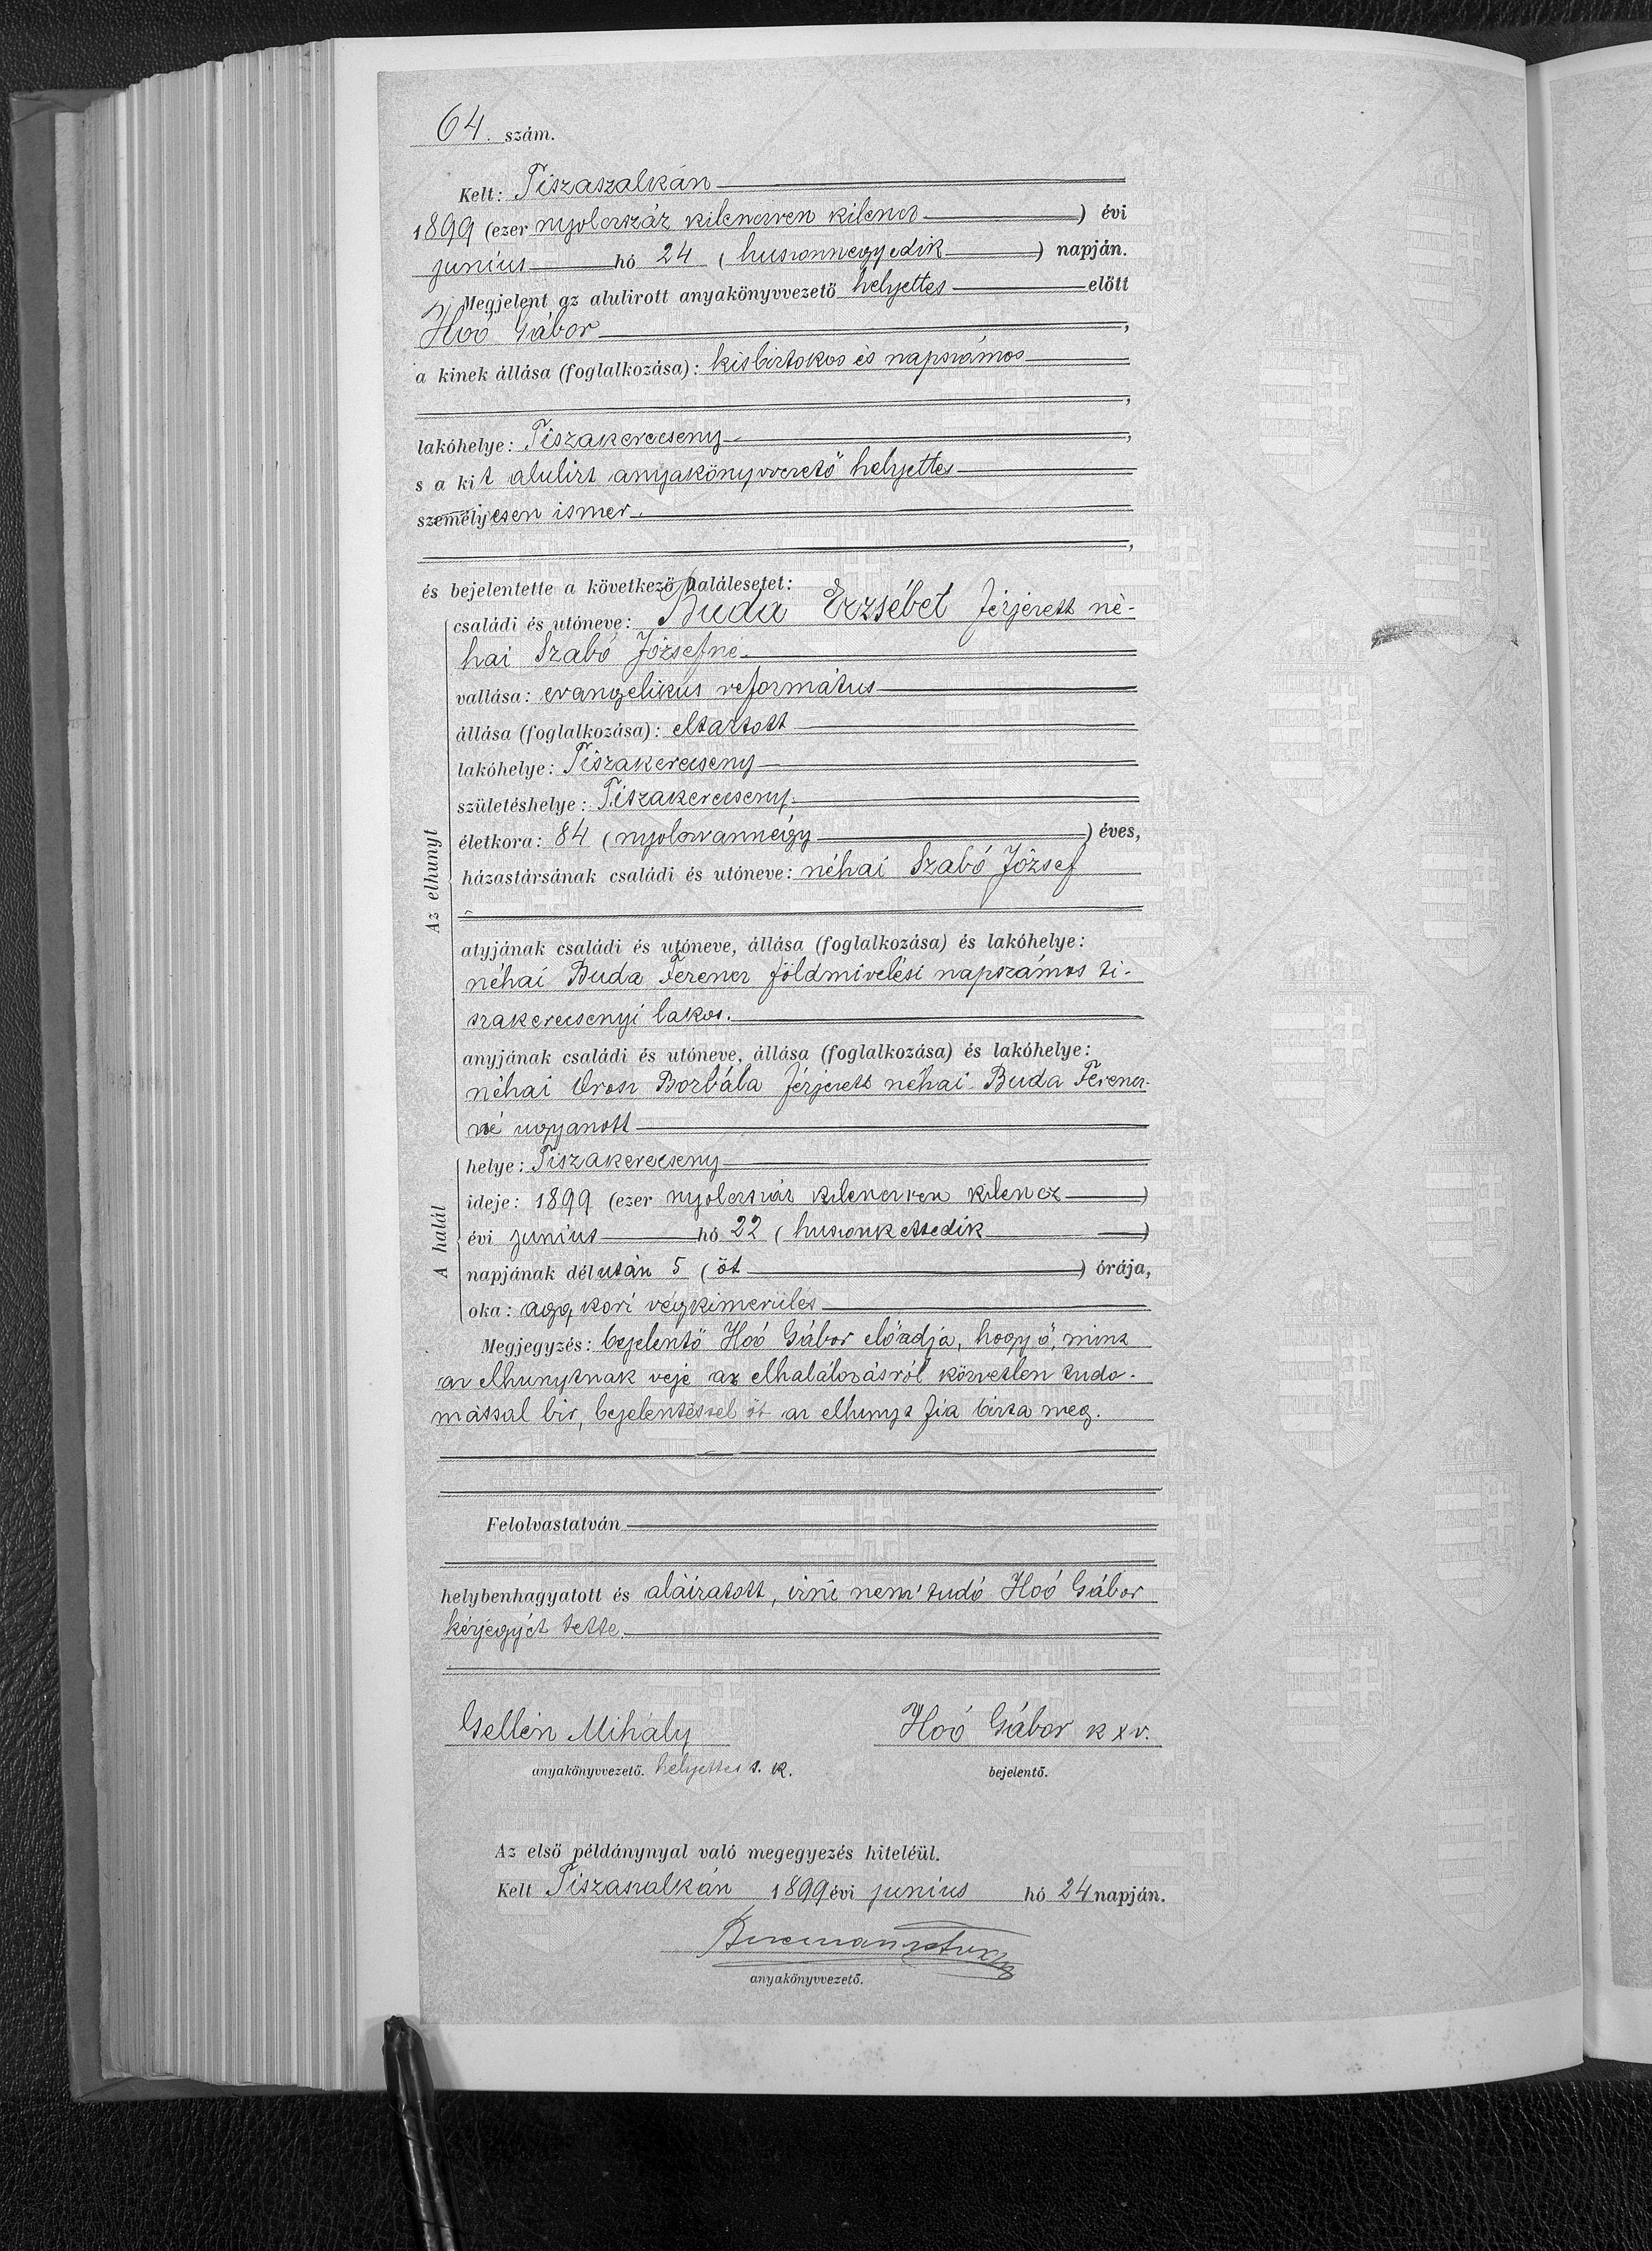 64. szám.
Kelt: Tiszaszalkán
1899 (ezer nyolczszáz kilenczven kilencz) évi
junius hó 24 (huszonnegyedik) napján.
Megjelent az alulirott anyakönyvvezető helyettes előtt
Hoó Gábor,
a kinek állása (foglalkozása): kisbirtokos és napszámos
,
lakóhelye: Tiszakerecseny,
s a kit alulirt anyakönyvvezető helyettes
személyesen ismer.
,
és bejelentette a következő halálesetet:
Az elhunyt
családi és utóneve: Buda Erzsébet férjezett né-
hai Szabó Józsefné
vallása: evangelikus református
állása (foglalkozása): eltartott
lakóhelye: Tiszakerecseny
születéshelye: Tiszakerecseny
életkora: 84 (nyolczvannégy) éves,
házastársának családi és utóneve: néhai Szabó József
atyjának családi és utóneve, állása (foglalkozása) és lakóhelye:
néhai Buda Ferencz földmivelési napszámos ti-
szakerecsenyi lakos.
anyjának családi és utóneve, állása (foglalkozása) és lakóhelye:
néhai Orosz Borbála férjezett néhai Buda Ferencz-
né ugyanott
A halál
helye: Tiszakerecseny
ideje: 1899 (ezer nyolczszáz kilenczven kilencz)
évi junius hó 22 (huszonkettedik)
napjának délután 5 (öt) órája,
oka: aggkori végkimerülés
Megjegyzés: bejelentő Hoó Gábor előadja, hogy ő, mint
az elhunytnak veje az elhalálozásról közvetlen tudo-
mással bir, bejelentéssel őt az elhunyt fia bizta meg.
Felolvastatván
helybenhagyatott és aláiratott, irni nem tudó Hoó Gábor
kézjegyét tette.
Gellén Mihály
anyakönyvvezető. helyettes s. k.
Hoó Gábor k x v.
bejelentő.
Az első példánynyal való megegyezés hiteléül.
Kelt Tiszaszalkán 1899 évi junius hó 24 napján.
anyakönyvvezető.